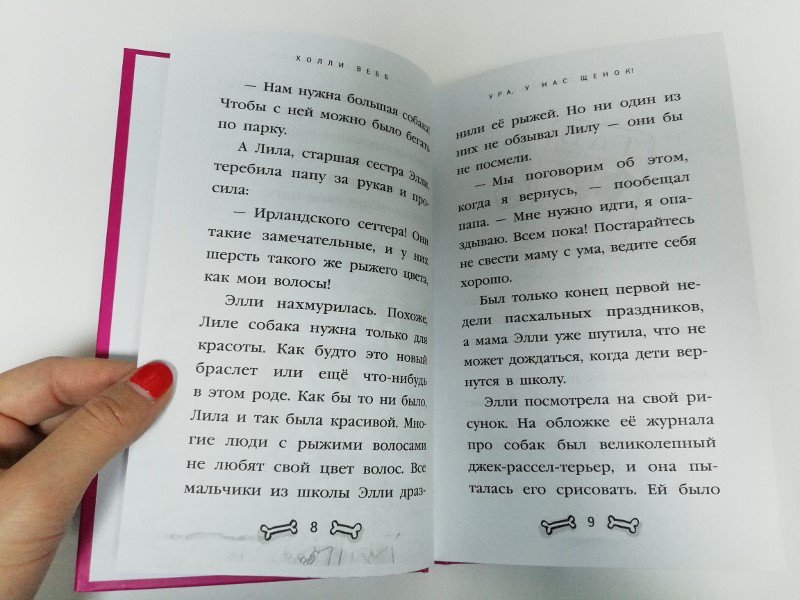 ХОЛЛИ ВЕББ
— Нам нужна большая собака!
Чтобы с ней можно было бегать
по парку.
А Лила, старшая сестра Элли,
теребила папу за рукав и про-
сила:
— Ирландского сеттера! Они
такие замечательные, и у них
шерсть такого же рыжего цвета,
как мои волосы!
Элли нахмурилась. Похоже,
Лиле собака нужна только для
красоты. Как будто это новый
браслет или ещё что-нибудь
в этом роде. Как бы то ни было,
Лила и так была красивой. Мно-
гие люди с рыжими волосами
не любят свой цвет волос. Все
мальчики из школы Элли драз-
8
УРА, У НАС ЩЕНОК!
нили её рыжей. Но ни один из
них не обзывал Лилу — они бы
не посмели.
— Мы поговорим об этом,
когда я вернусь, — пообещал
папа. — Мне нужно идти, я опа-
здываю. Всем пока! Постарайтесь
не свести маму с ума, ведите себя
хорошо.
Был только конец первой не-
дели пасхальных праздников,
а мама Элли уже шутила, что не
может дождаться, когда дети вер-
нутся в школу.
Элли посмотрела на свой ри-
сунок. На обложке её журнала
про собак был великолепный
джек-рассел-терьер, и она пы-
талась его срисовать. Ей было
9